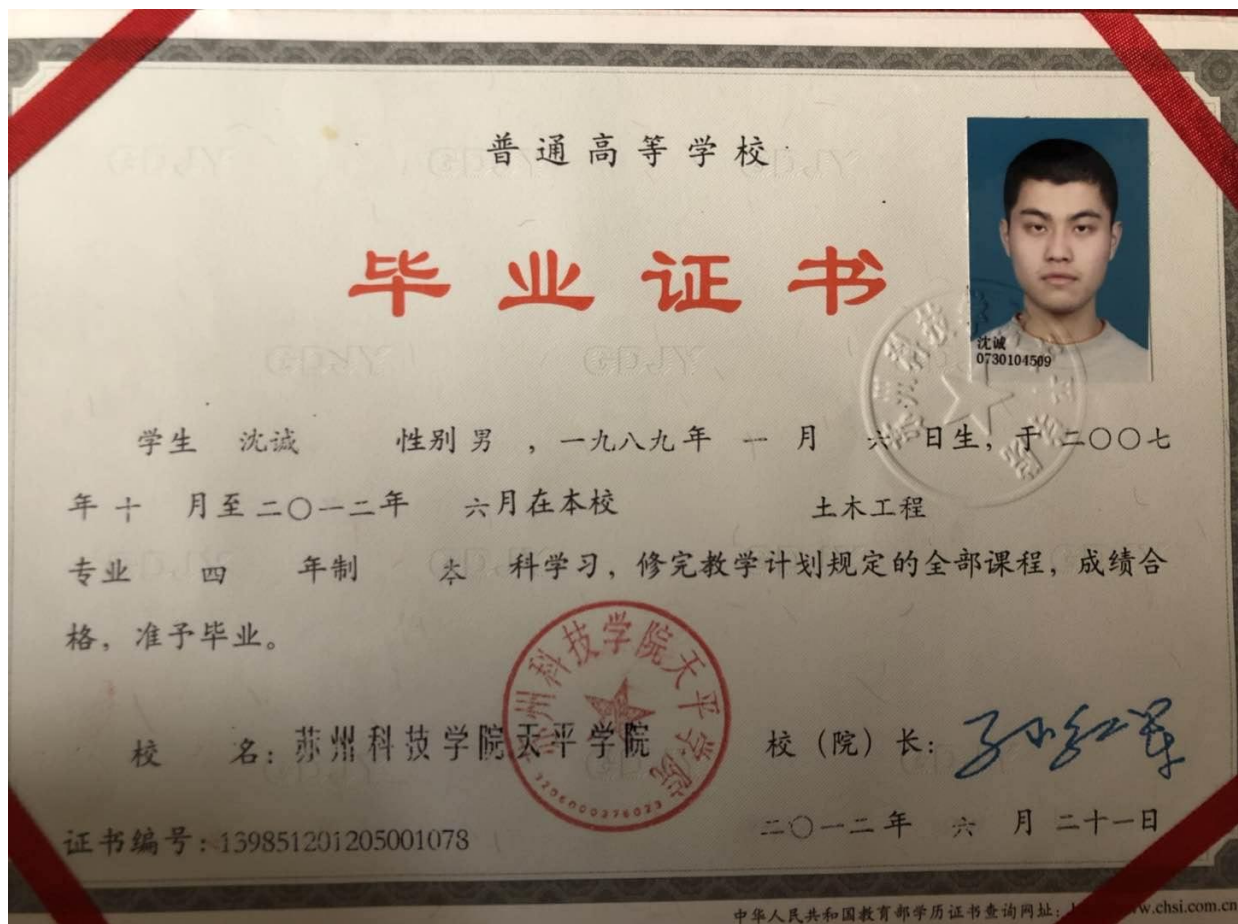 普通高等学校
毕业证书
沈诚
0730104509
学生 沈诚 性别 男 ，一九八九年 一 月 六 日生，于 二〇〇七
年 十 月至 二〇一二年 六月在本校 土木工程
专业 四 年制 本 科学习，修完教学计划规定的全部课程，成绩合
格，准予毕业。
苏州科技学院天平学院
3206000376023
校 名：苏州科技学院天平学院 校（院）长：
证书编号：139851201205001078 二〇一二年 六 月 二十一日
中华人民共和国教育部学历证书查询网址：w.chsi.com.cn